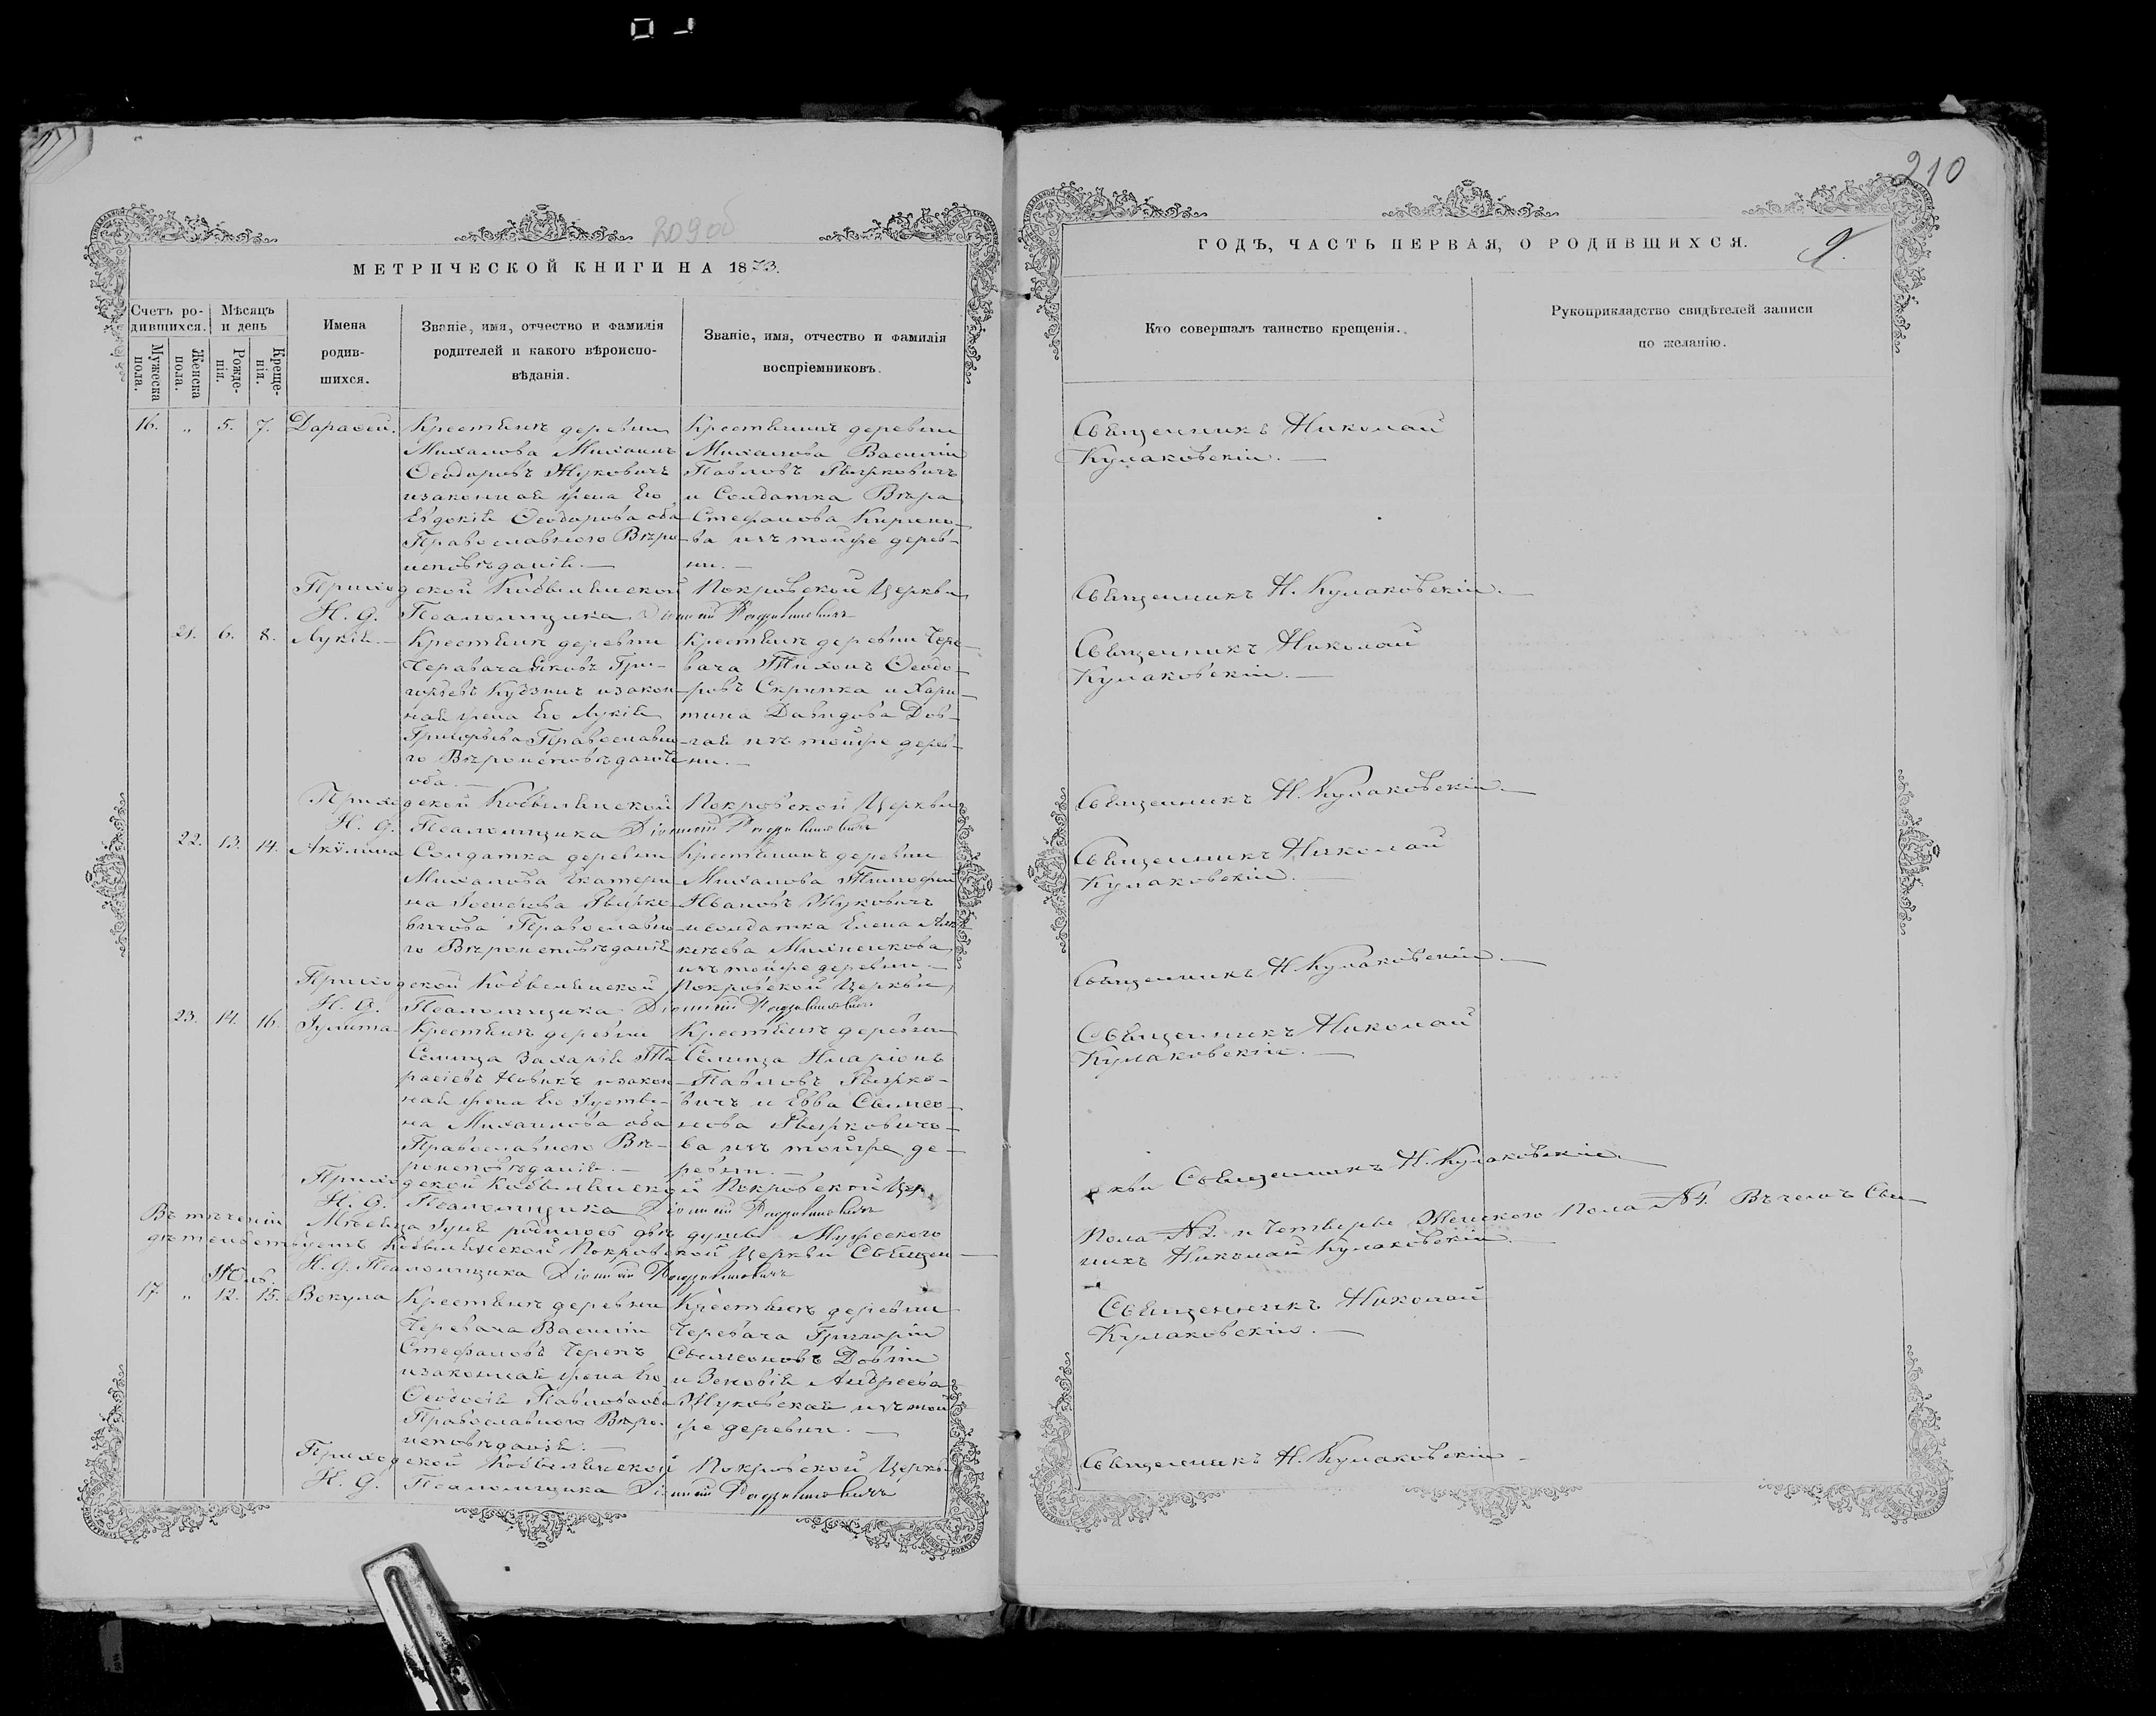 209об
МЕТРИЧЕСКОЙ КНИГИ НА 1873.
Счетъ ро-
дившихся.
Мѣсяцъ
и день
Мужеска
пола.
Женска
пола.
Рожде-
нія.
Креще-
нія.
Имена
родив-
шихся.
Званіе, имя, отчество и фамилія
родителей и какого вѣроиспо-
вѣданія.
Званіе, имя, отчество и фамилія
воспріемниковъ.
16. „ 5. 7.
Крестьянъ деревни
Михалова Михаилъ
Ѳеодоровъ Жуковичъ
изаконная жена Его
Евдокія Ѳеодорова оба
Православнаго Вѣро-
исповѣданія.—
Крестьянинъ деревни
Михалова Василій
Павловъ Рыжковичъ
и Солдатка Вѣра
Стефанова
ва изъ тойже дерев-
ни.—
Приходской Покровской Церкви
И. д. Псаломщика
21. 6. 8. Лукія.—
Крестьянъ деревни
Черевача Яковъ Гри-
изакон-
ная жена Его Лукія
Григорьева Православна-
го Вѣроисповѣданія
оба.—
Крестьянъ деревни Чере-
вача Тихонъ Ѳеодо-
ровъ Скрипка и Хари-
тина Давидова Дов-
гая изъ тойже дерев-
ни.—
Приходской Покровской Церкви
И. д. Псаломщика
22. 13. 14. Акулина
Солдатка деревни
Михалова Екатери-
на Іосифова Рыжко-
вичова Православна-
го Вѣроисповѣданія
Крестьянинъ деревни
Михалова Тимофей
Ивановъ Жуковичъ
исолдатка Елена
изъ тойже деревни—
Приходской Покровской Церкви
И. д. Псаломщика
23. 14. 16. Іулита
Крестьянъ деревни
Селища Захарія Та-
расіевъ Новикъ изакон-
ная жена Его Іусти-
на Михаилова оба
Православнаго Вѣ-
роисповѣданія.—
Крестьянъ деревни
Селища Иларіонъ
Павловъ Рыжко-
вичъ и Евва Симео-
нова Рыжковичо-
ва изъ тойже де-
ревни.—
Приходской Покровской Цер
И. д. Псаломщика
Въ теченіи Мѣсяца Іуня родилось двѣ души Мужескаго
Покровской Церкви Священ-
И. д. Псаломщика
Юль.
17. „ 12. 15. Вокула
Крестьянъ деревни
Черевача Василій
Стефановъ Черепъ
изаконная жена Его
Ѳеодосія Павлова оба
Православнаго Вѣро-
исповѣданія.—
Крестьянъ деревни
Черевача Григорій
Симеоновъ Довгій
и Зеновія Андреева
Жуковская изъ той
же деревни.—
Приходской Покровской Церкви
И. д. Псаломщика
210
ГОДЪ, ЧАСТЬ ПЕРВАЯ, О РОДИВШИХСЯ.
Кто совершалъ таинство крещенія.
Рукоприкладство свидѣтелей записи
по желанію.
Священникъ Николай
Кулаковскій.—
Священникъ Н. Кулаковскій.—
Священникъ Николай
Кулаковскій.—
Священникъ Н. Кулаковскій.—
Священникъ Николай
Кулаковскій.—
Священникъ Н. Кулаковскій.—
Священникъ Николай
Кулаковскій.—
кви Священникъ Н. Кулаковскій.
Пола №2. и Четверо Женскаго Пола №4. Въ чемъ Сви-
никъ Николай Кулаковскій.—
Священникъ Николай
Кулаковскій.—
Священникъ Н. Кулаковскій—